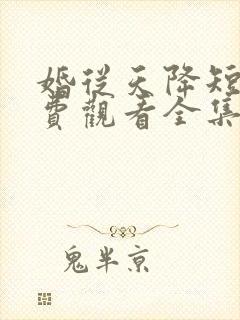 婚從天降短
費觀看全集
鬼半京